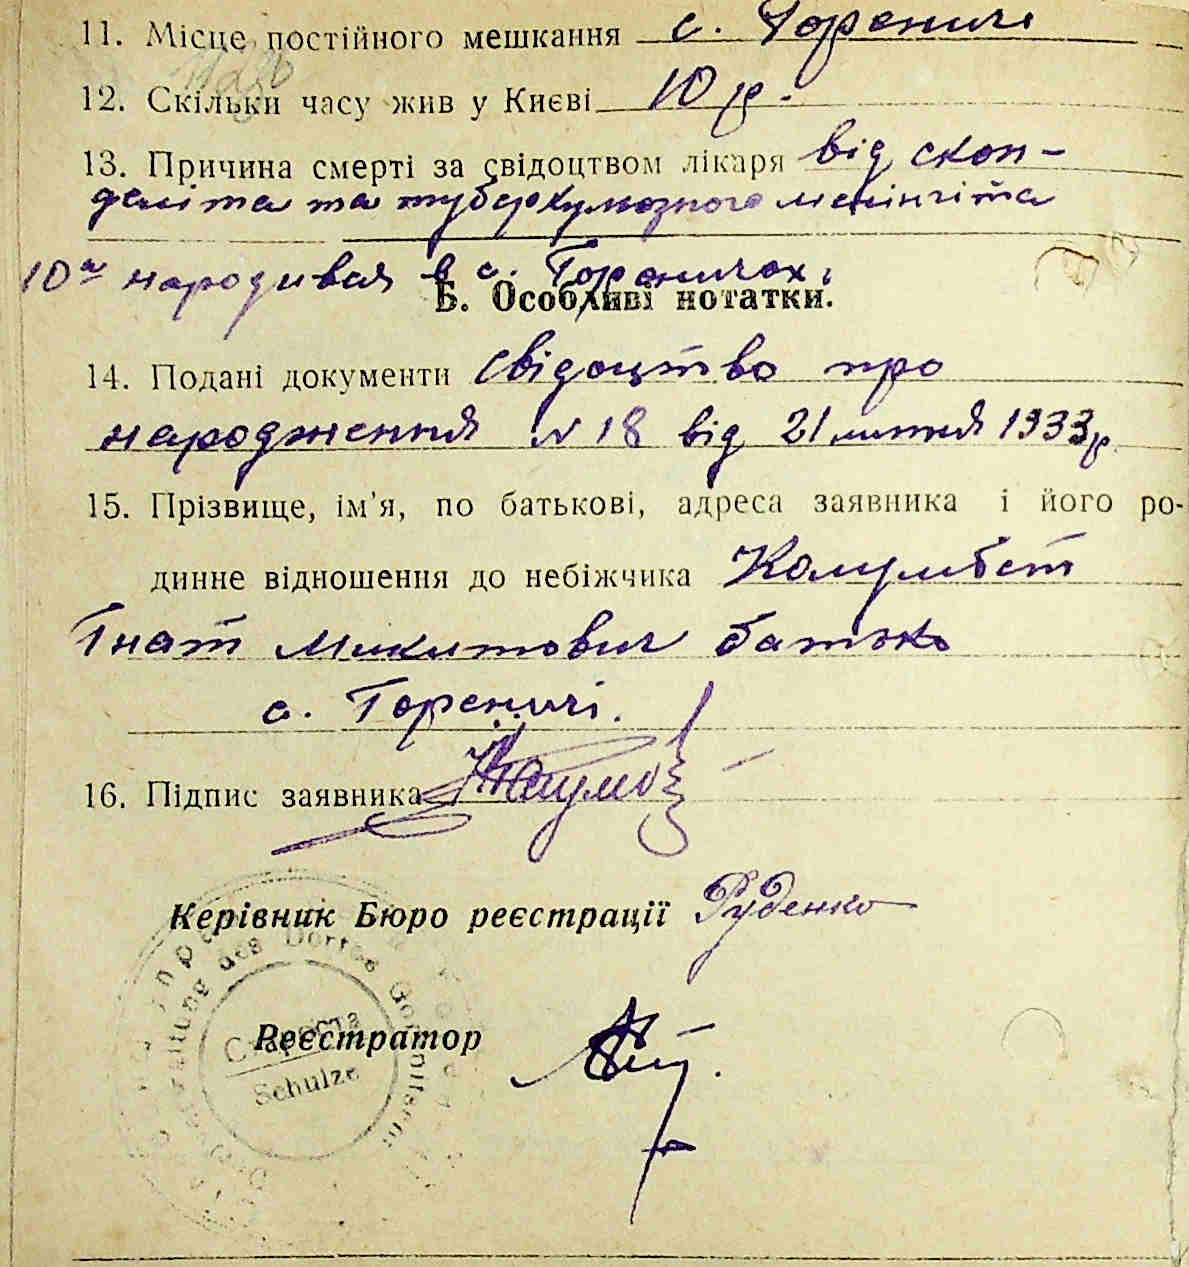 11. Місце постійного мешкання с. Гореничі
12. Скільки часу жив у Києві 10 р.
13. Причина смерті за свідоцтвом лікаря від спон-
деліта та туберкульозного менінгіта
10 а народився в с. Гореничах.
Б. Особливі нотатки.
14. Подані документи Свідоцтво про
народження N 18 від 21 липня 1933 р.
15. Прізвище, ім'я, по батькові, адреса заявника і його ро-
динне відношення до небіжчика Колумбет
Гнат Микитович батько
с. Гореничі.
16. Підпис заявника
Керівник Бюро реєстрації Руденко
Реєстратор
des Dorfes
Староста
Schulze